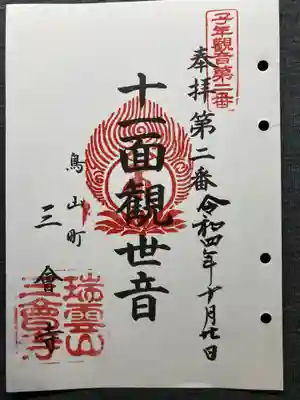 子年觀音第二番
奉拝第二番令和四年十月廿日
十一面觀世音
鳥山町
三會寺
瑞雲山
三會寺